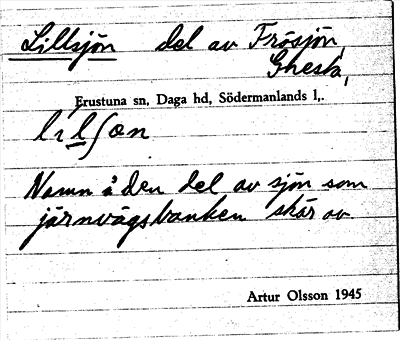 Lillsjön del av Frösjön,
Gnesta,
Frustuna sn, Daga hd, Södermanlands l,.
Namn å den del av sjön som
järnvägsbanken skär av
Artur Olsson 1945